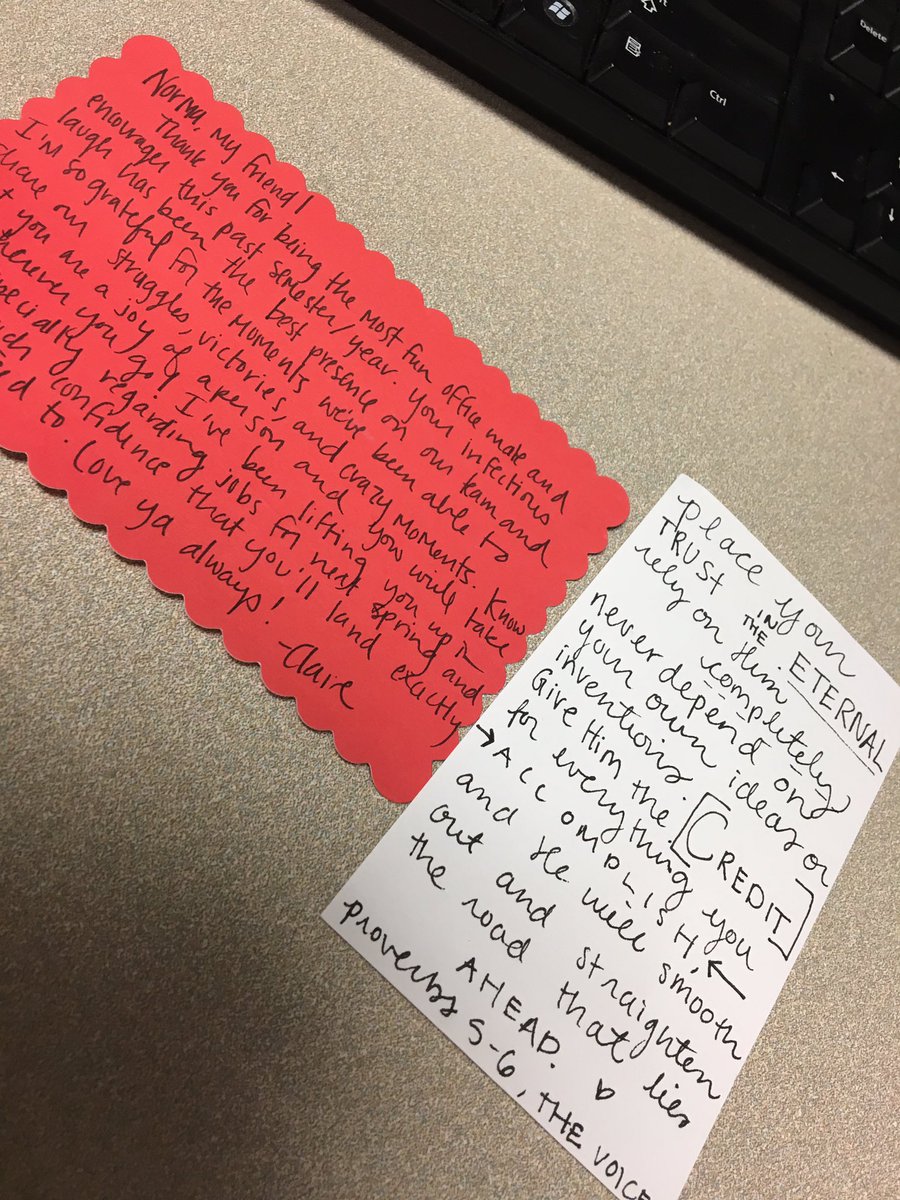 Norma, my friend!
Thank you for being the most fun office mate and
encourager this past semester/year. Your infectious
laugh has been the best presence on our team and
I'm so grateful for the moments we've been able to
share our struggles, victories, and crazy moments. Know
you are a joy of a person and you will take
wherever you go! I've been lifting you up in
especially regarding jobs for next spring and
confidence that you'll land exactly
to. Love ya always! -Claire
place your
TRUST IN THE ETERNAL
rely on Him completely
never depend on
your own ideas or
inventions.
Give Him the [CREDIT]
for everything you
→ACCOMPLISH,←
and He will smooth
out and straighten
the road that lies
AHEAD. ♡
proverbs 5-6, THE VOICE
Ctrl
Delete
←
↓